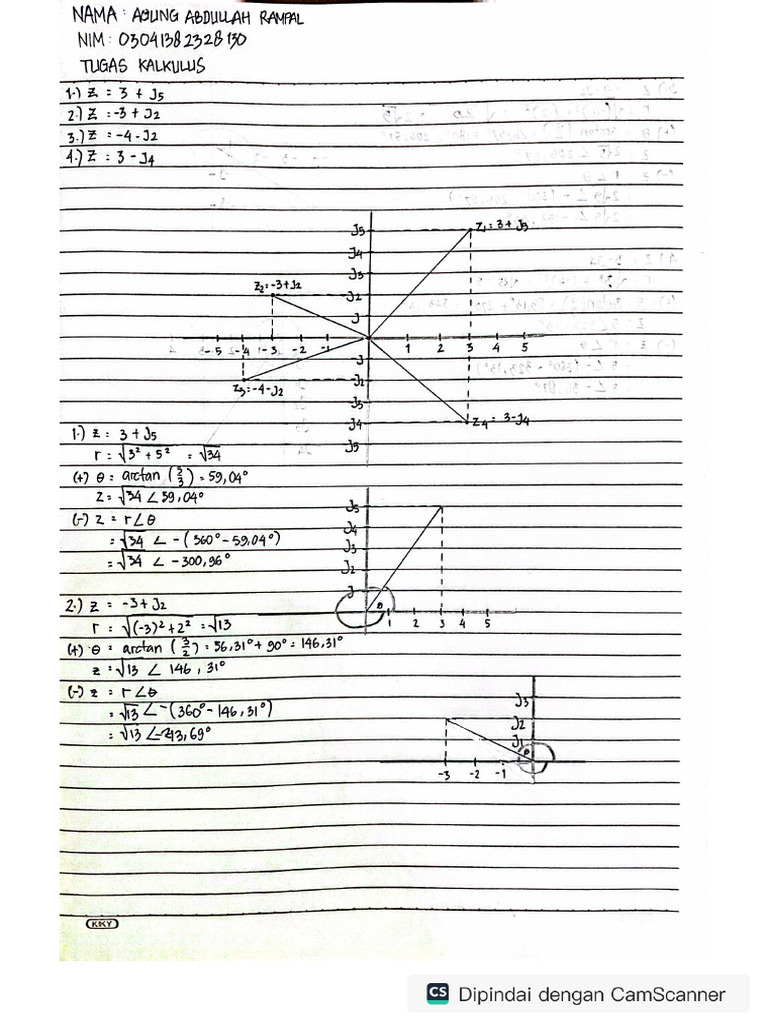 NAMA : AGUNG ABDULLAH RAMPAL
NIM : 03041382328130
TUGAS KALKULUS
1.) Z = 3 + J5
2.) Z = -3 + J2
3.) Z = -4 - J2
4.) Z = 3 - J4
J5
Z1 = 3 + J5
J4
J3
Z2 = -3 + J2
J2
J
-5 -4 -3 -2 -1 1 2 3 4 5
-J
J2
Z3 = -4 - J2
-J3
J4
Z4 = 3 - J4
J5
1.) Z = 3 + J5
r = √3² + 5² = √34
(+) θ = arctan (5/3) = 59,04°
Z = √34 ∠ 59,04°
(-) Z = r∠θ
= √34 ∠ -(360° - 59,04°)
= √34 ∠ -300,96°
J5
J4
J3
J2
J
θ
1 2 3 4 5
2.) Z = -3 + J2
r = √(-3)² + 2² = √13
(+) θ = arctan (3/2) = 56,31° + 90° = 146,31°
Z = √13 ∠ 146,31°
(-) Z = r∠θ
= √13 ∠ -(360° - 146,31°)
= √13 ∠-213,69°
J3
J2
J1
θ
-3 -2 -1
KIKY
CS Dipindai dengan CamScanner